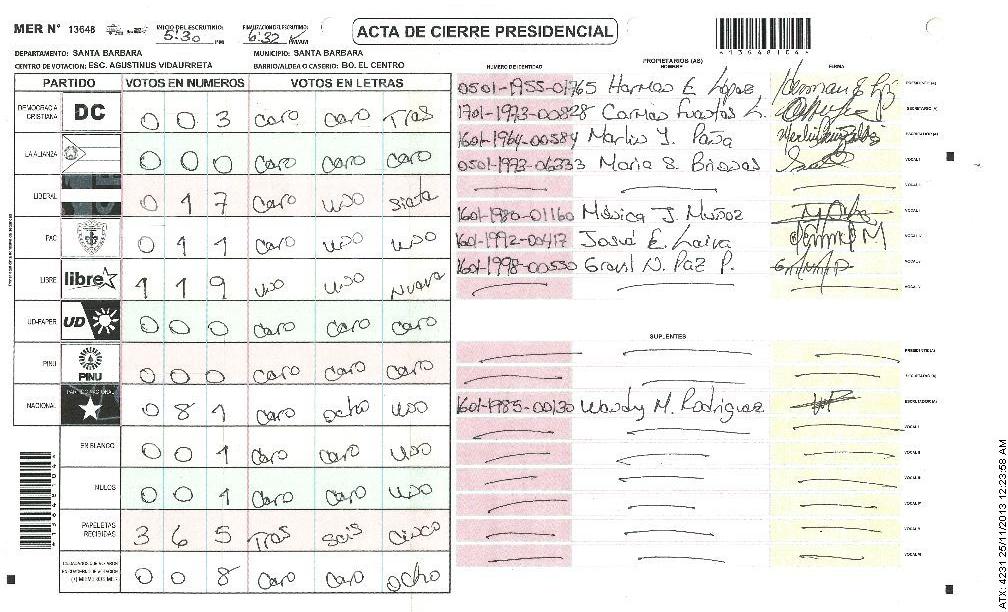 MER Nº 13648 INICIO DEL ESCRUTINIO: 5:30 PM FINALIZACION DEL ESCRUTINIO: 6:32 PM/AM
ACTA DE CIERRE PRESIDENCIAL
DEPARTAMENTO: SANTA BARBARA MUNICIPIO: SANTA BARBARA
CENTRO DE VOTACION: ESC. AGUSTINUS VIDAURRETA BARRIO/ALDEA O CASERIO: BO. EL CENTRO
PARTIDO VOTOS EN NUMEROS VOTOS EN LETRAS
DEMOCRACIA CRISTIANA DC 0 0 3 Cero Cero Tres
LA ALIANZA 0 0 0 Cero Cero Cero
LIBERAL 0 1 7 Cero Uno Siete
PAC 0 1 1 Cero Uno Uno
LIBRE libre 1 1 9 Uno Uno Nueve
UD-FAPER UD 0 0 0 Cero Cero Cero
PINU PINU 0 0 0 Cero Cero Cero
NACIONAL PARTIDO NACIONAL 0 8 1 Cero Ocho Uno
EN BLANCO 0 0 1 Cero Cero Uno
NULOS 0 0 1 Cero Cero Uno
PAPELETAS RECIBIDAS 3 6 5 Tres Seis Cinco
0 0 8 Cero Cero Ocho
PROPIETARIOS (AS)
NUMERO DE IDENTIDAD NOMBRE FIRMA
0501-1955-01765 Hermes E. López PRESIDENTE (A)
1701-1973-00828 Carmen Fuentes L. SECRETARIO (A)
1601-1964-00584 Merlin Y. Peña ESCRUTADOR (A)
0501-1973-06333 Maria S. VOCAL I
1601-1980-01160 Mónica J. Muñoz
1601-1992-00417 José E. Leiva
1601-1998-00530 N. Paz P.
SUPLENTES
PRESIDENTE (A)
SECRETARIO (A)
1601-1985-00130 Wendy M. Rodriguez ESCRUTADOR (A)
VOCAL I
VOCAL II
VOCAL III
VOCAL IV
VOCAL V
VOCAL VI
ATX: 4231 25/11/2013 12:23:58 AM